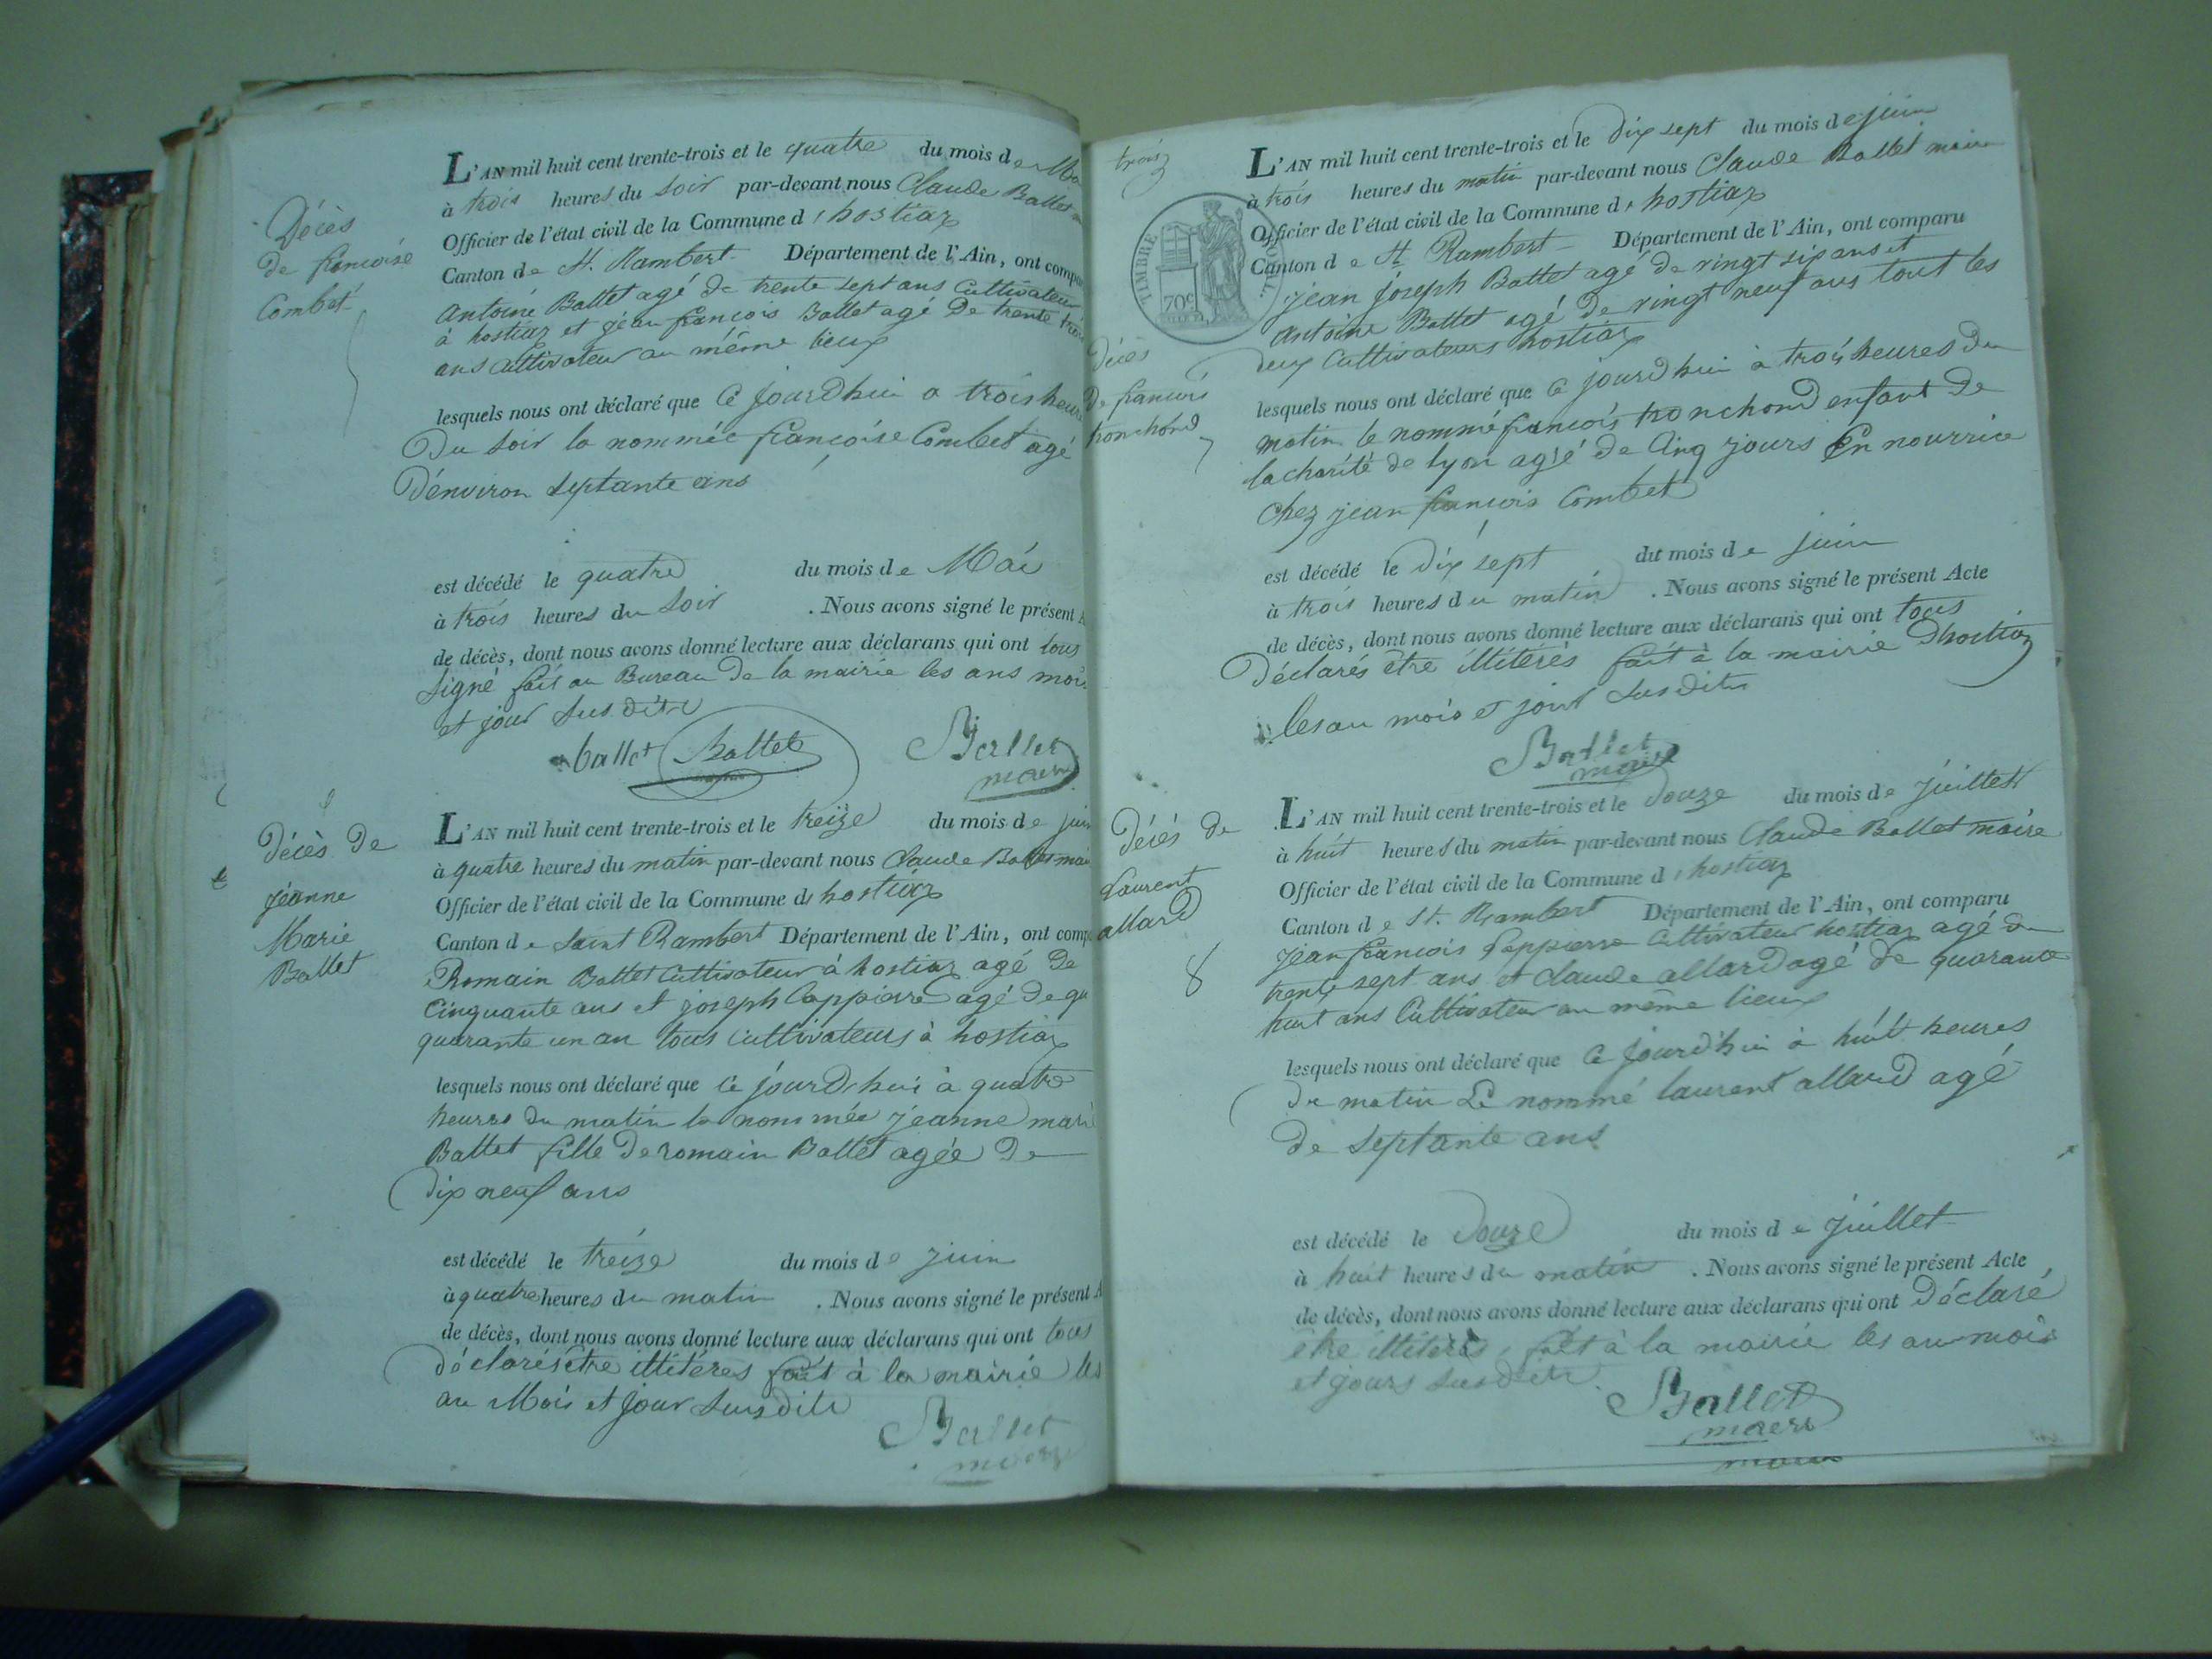 Décès
de francoise
Combet
L'AN mil huit cent trente-trois et le quatre du mois de Ma
à trois heures du soir par-devant nous Claude Ballet
Officier de l'état civil de la Commune d, hostiaz
Canton de St. Rambert Département de l'Ain, ont compa
Antoine Ballet agé de trente sept ans Cultivateur
à hostiaz et jéan francois Ballet agé De trente trois
ans cultivateur au même lieux
lesquels nous ont déclaré que Ce jourdhui a trois heure
Du soir la nommée francoise Combet agé
D'environ septante ans
est décédé le quatre du mois de Mai
à trois heures du soir . Nous avons signé le présent A
de décès, dont nous avons donné lecture aux déclarans qui ont tous
signé fait au Bureau De la mairie les ans mois
et jour susdits
ballet Ballet Ballet
maire
Décès De
jéanne
Marie
Ballet
L'AN mil huit cent trente-trois et le treize du mois de juin
à quatre heures du matin par-devant nous Claude Ballet mai
Officier de l'état civil de la Commune d, hostiaz
Canton de saint Rambert Département de l'Ain, ont comp
Romain Ballet Cultivateur à hostiaz agé De
Cinquante ans et joseph Cappierre agé De qu
quarante un an tous cultivateurs à hostiaz
lesquels nous ont déclaré que Ce jourdhui à quatre
heures du matin la nommée jéanne marie
Ballet fille De romain Ballet agée De
dix neuf ans
est décédé le treize du mois de juin
à quatre heures du matin . Nous avons signé le présent A
de décès, dont nous avons donné lecture aux déclarans qui ont tous
déclarés être illitéres fait à la mairie les
an Mois et jour susdits
Ballet
maire
trois
TIMBRE ROYAL.
70c
Décès
De francois
tronchond
7
L'AN mil huit cent trente-trois et le Dix sept du mois de juin
à trois heures du matin par-devant nous Claude Ballet maire
Officier de l'état civil de la Commune d, hostiaz
Canton de St Rambert Département de l'Ain, ont comparu
jéan joseph Ballet agé de vingt six ans et
antoine Ballet agé de vingt neuf ans tout les
deux Cultivateurs hostiaz
lesquels nous ont déclaré que Ce jourdhui à trois heures du
matin le nommé francois tronchond enfant de
la charité de lyon agé de Cinq jours En nourrice
chez jean francois Combet
est décédé le Dix sept du mois de juin
à trois heures du matin . Nous avons signé le présent Acte
de décès, dont nous avons donné lecture aux déclarans qui ont tous
Déclarés être illitérés fait à la mairie Dhostiaz
les an mois et jour susdits
Ballet
maire
Décès de
Laurent
allard
8
L'AN mil huit cent trente-trois et le Douze du mois de juillet
à huit heures du matin par-devant nous Claude Ballet maire
Officier de l'état civil de la Commune d, hostiaz
Canton de St. Rambert Département de l'Ain, ont comparu
jéan francois Cappierre Cultivateur hostiaz agé de
trente sept ans et claude allard agé de quarante
huit ans Cultivateur au même lieux
lesquels nous ont déclaré que Ce jourd'hui à huit heures
Du matin Le nommé laurent allard agé
De septante ans
est décédé le Douze du mois de juillet
à huit heures du matin . Nous avons signé le présent Acte
de décès, dont nous avons donné lecture aux déclarans qui ont Déclaré
être illitérés, fait à la mairie les an mois
et jours susdits
Ballet
maire
maire